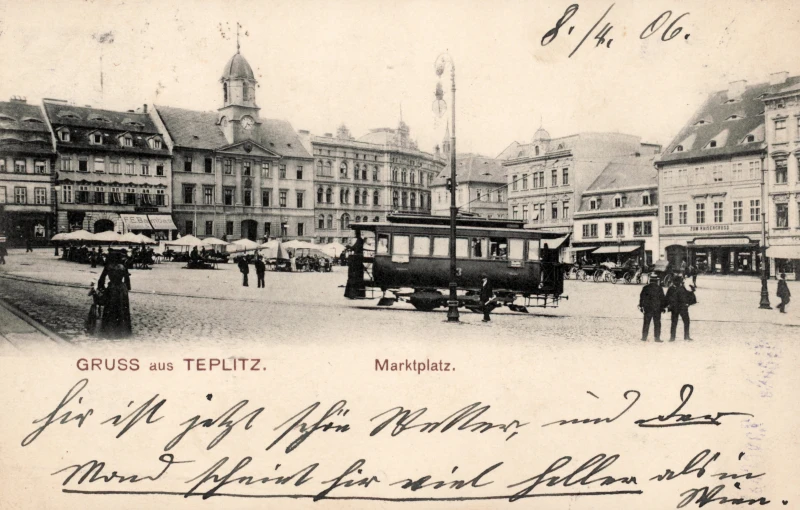 8./4. 06.
ZUM RADSCHENHOF
GRUSS aus TEPLITZ.
Marktplatz.
Hir ist jetzt schön Wetter, und der
Mond scheint hir viel heller als in
Wien.